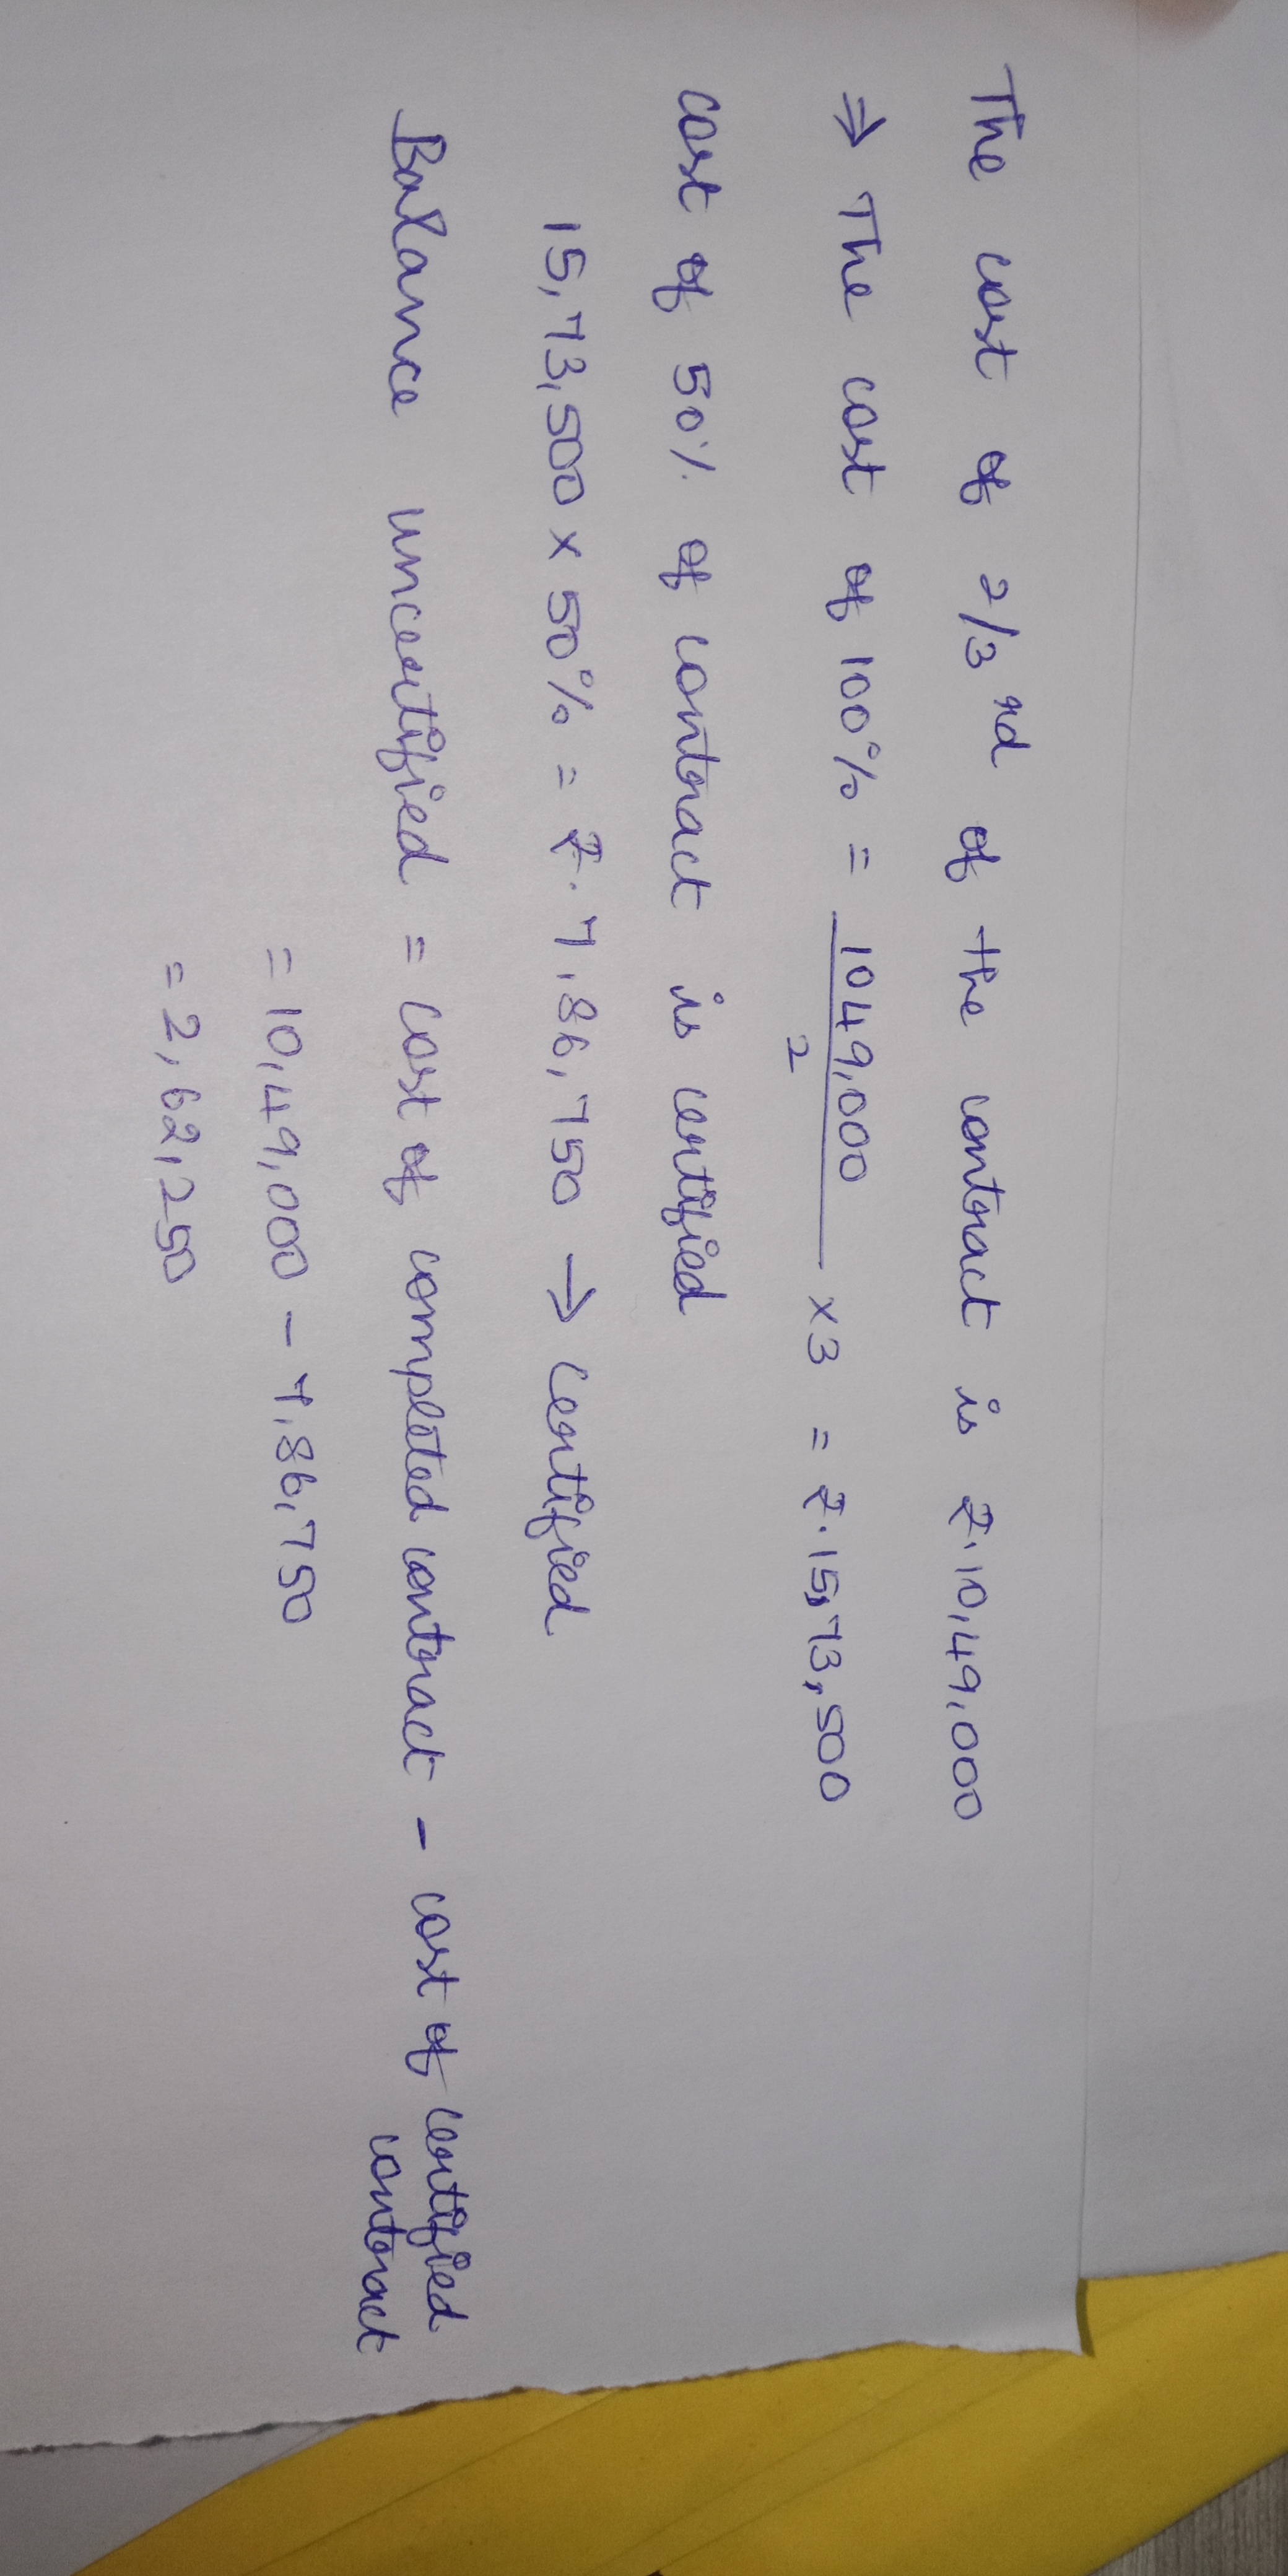 The cost of 2/3 rd of the contract is ₹. 10,49,000
⇒ The cost of 100% = 1049,000 / 2 × 3 = ₹. 15,73,500
cost of 50% of contract is certified
15,73,500 × 50% = ₹. 7,86,750 → certified
Balance uncertified = cost of completed contract - cost of certified contract
= 10,49,000 - 7,86,750
= 2,62,250